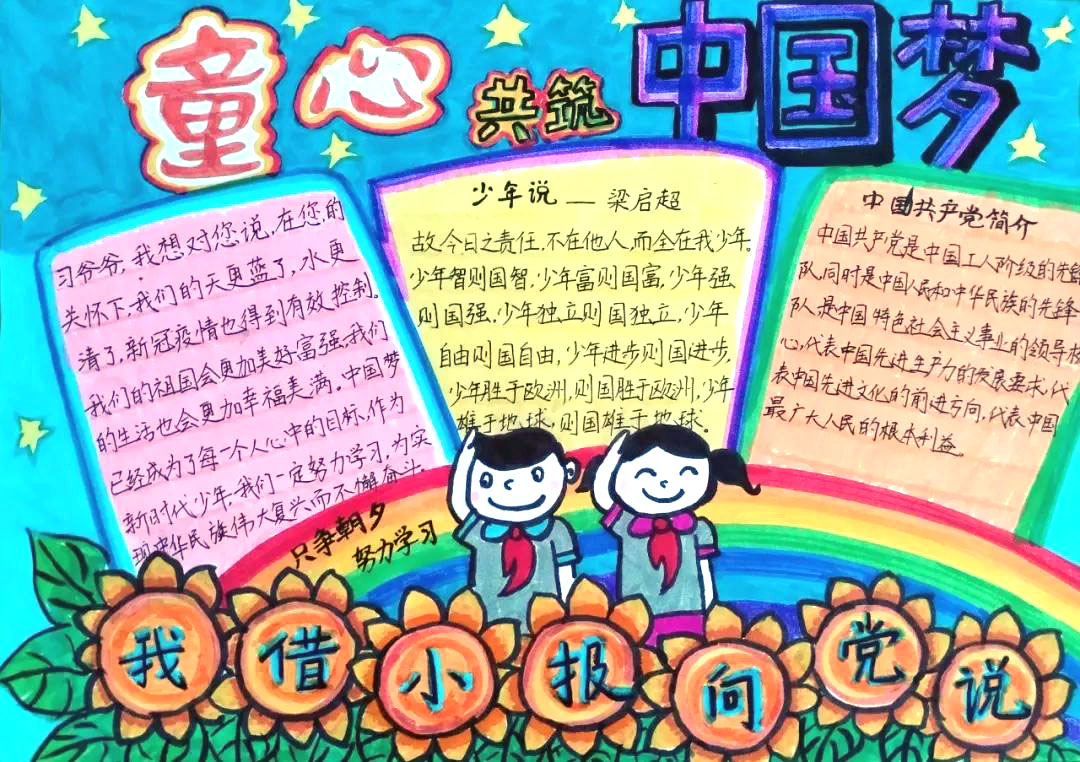 童心共筑中国梦
习爷爷,我想对您说,在您的
关怀下,我们的天更蓝了,水更
清了,新冠疫情也得到有效控制。
我们的祖国会更加美好富强,我们
的生活也会更加幸福美满。中国梦
已经成为了每一个人心中的目标,作为
新时代少年,我们一定努力学习,为实
现中华民族伟大复兴而不懈奋斗。
少年说——梁启超
故今日之责任,不在他人,而全在我少年。
少年智则国智,少年富则国富,少年强
则国强,少年独立则国独立,少年
自由则国自由,少年进步则国进步,
少年胜于欧洲,则国胜于欧洲,少年
雄于地球,则国雄于地球。
中国共产党简介
中国共产党是中国工人阶级的先锋
队,同时是中国人民和中华民族的先锋
队,是中国特色社会主义事业的领导核
心,代表中国先进生产力的发展要求,代
表中国先进文化的前进方向,代表中国
最广大人民的根本利益。
只争朝夕
努力学习
我借小报向党说